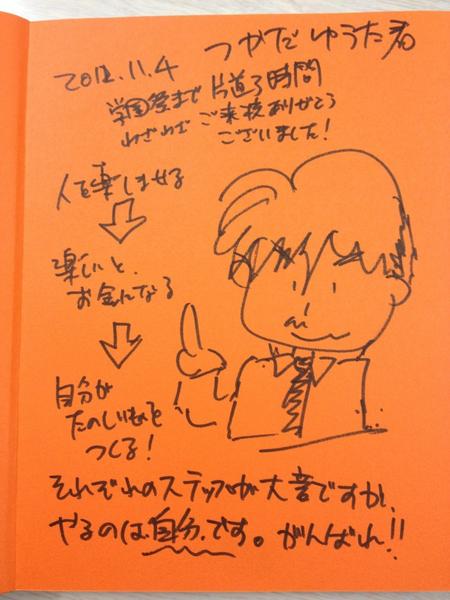 2012.11.4 つかだ ゆうた君
学園祭まで 片道3時間
わざわざ ご来校ありがとう
ございました!
人を楽しませる
楽しいと、
お金になる
自分が
たのしいものを
つくる!
それぞれのステップが大言ですが、
やるのは、自分、です。がんばれ!!